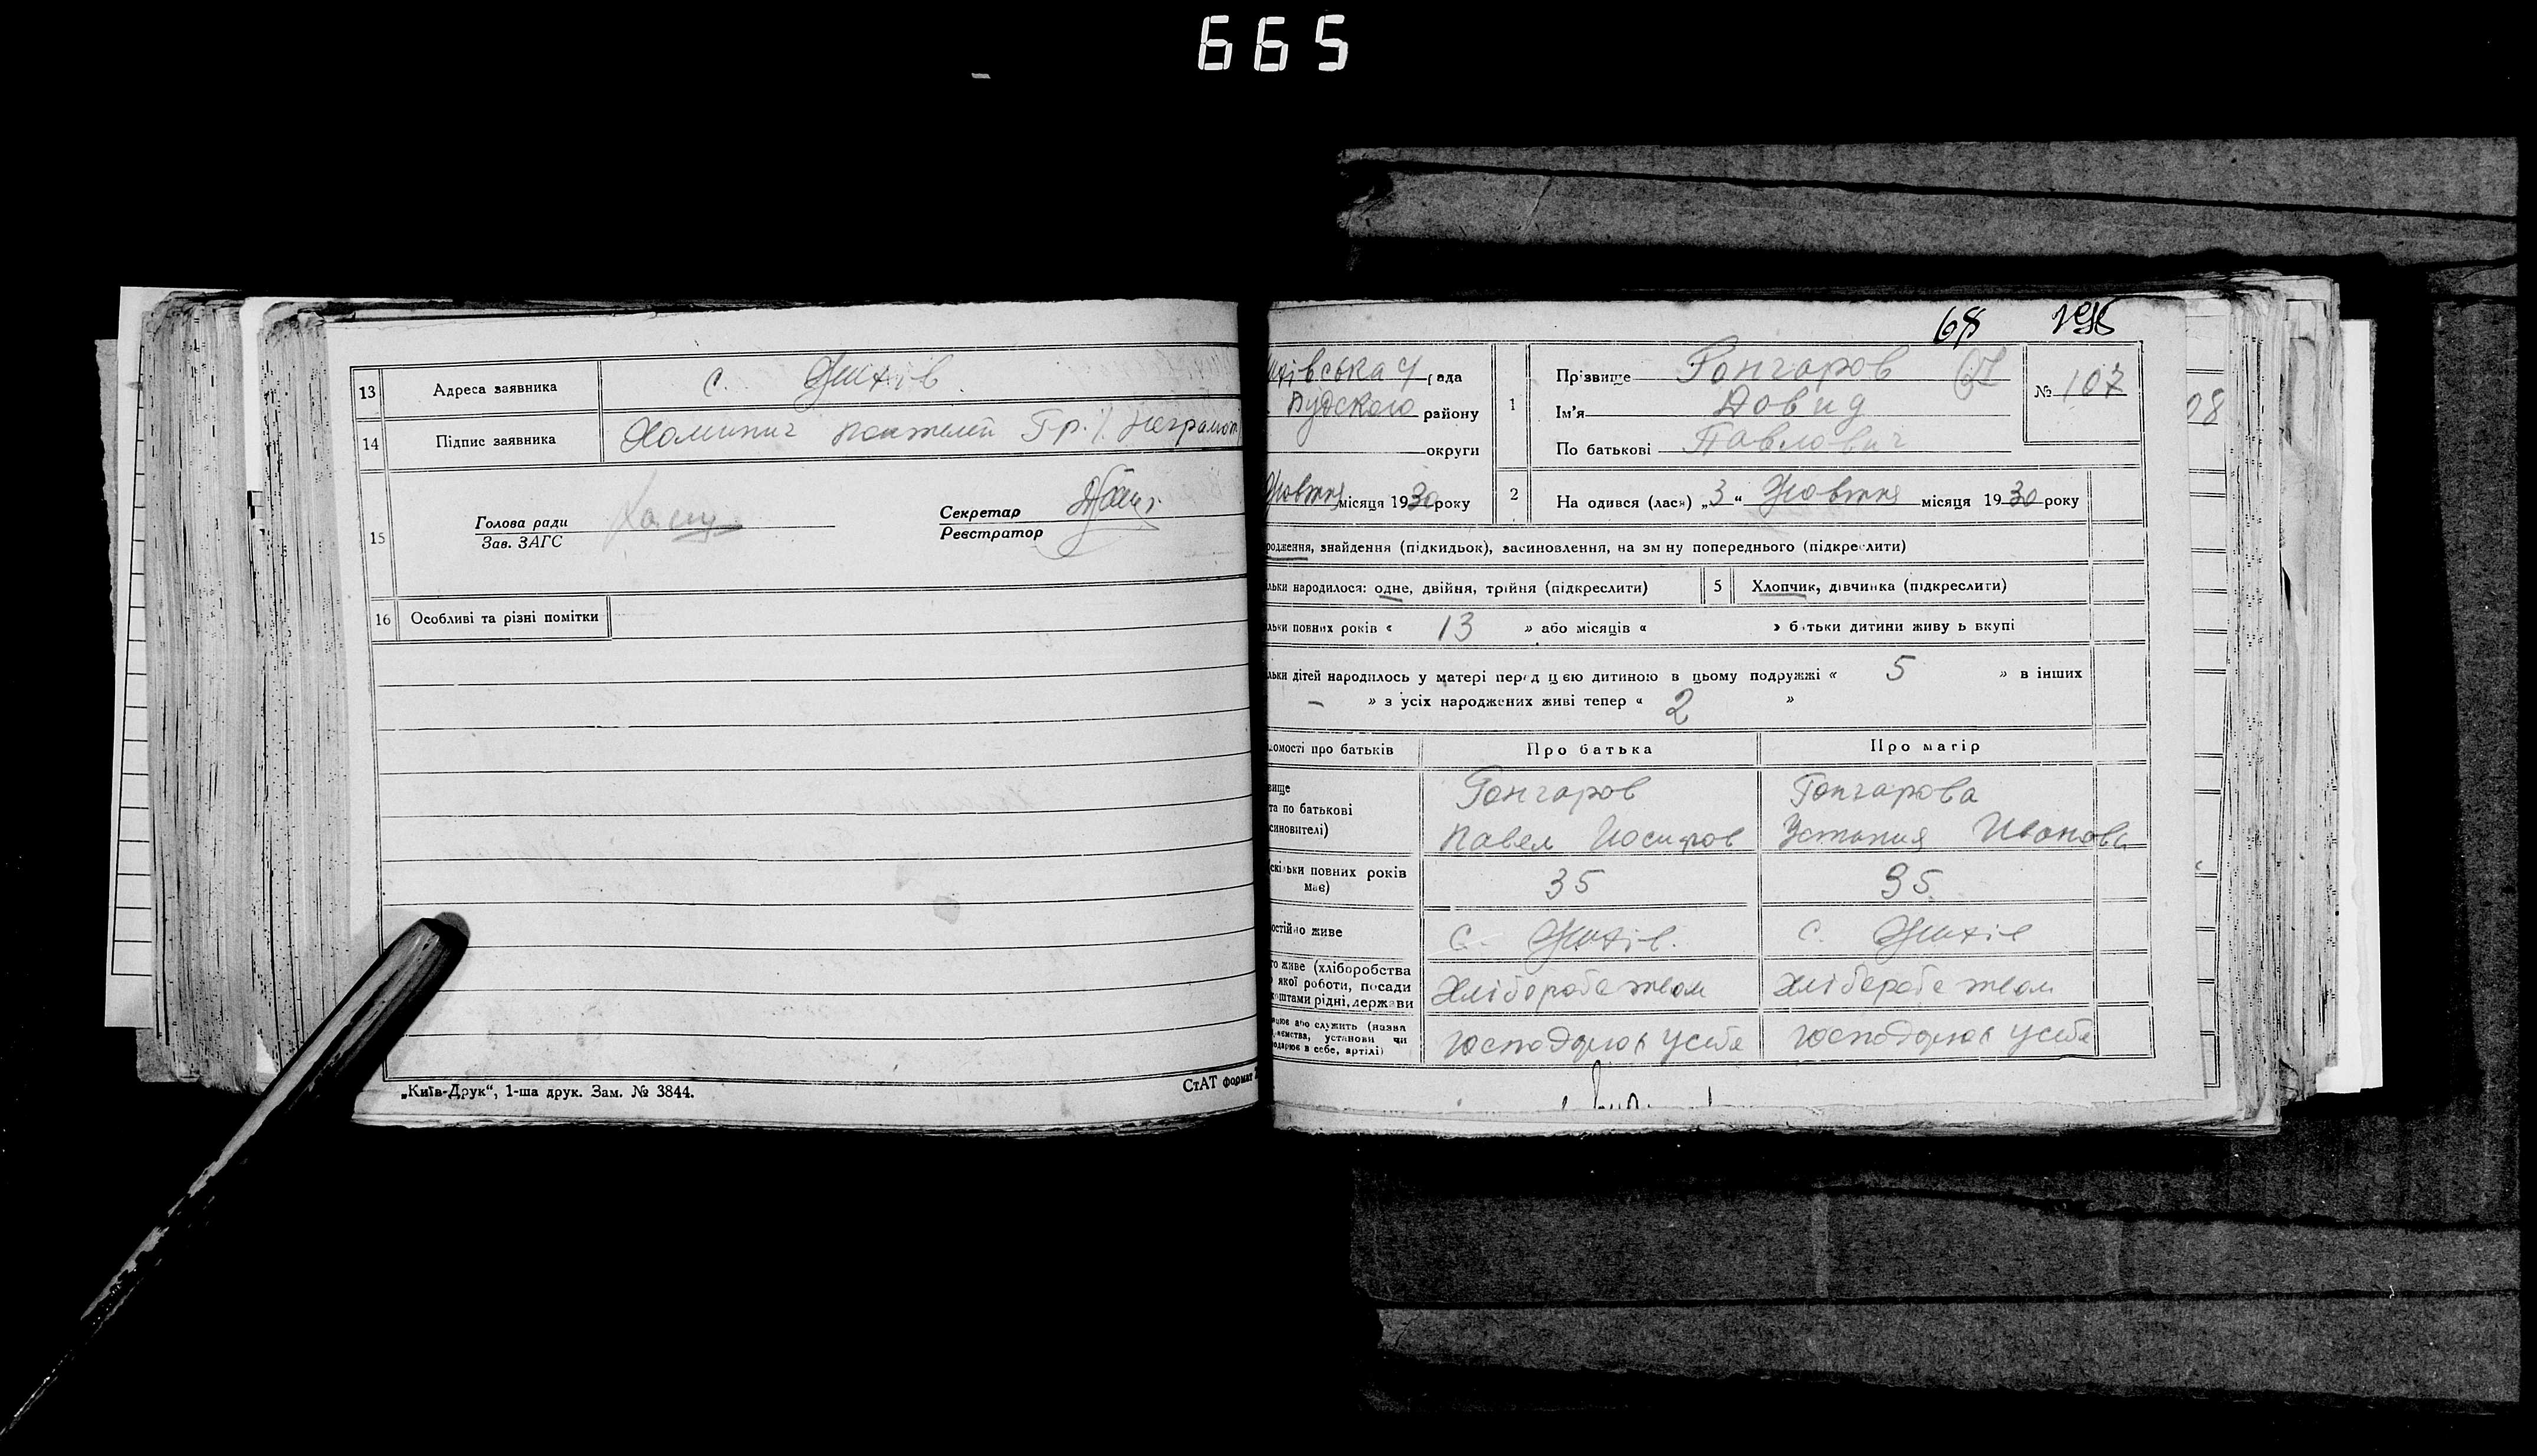 665
13 Адреса заявника с. Жихів
14 Підпис заявника Хоминич Пантелей Гр. Неграмот
15 Голова ради
Зав. ЗАГС
Секретар
Реєстратор
16 Особливі та різні помітки
„Київ-Друк“, 1-ша друк. Зам. № 3844.
СтАТ формат
68
ихівська рада
Будского району
округи
Жовтня місяця 1930 року
1 Прізвище Гончаров
Ім'я Довид
По батькові Павлович
№ 107
08
2 На одився (лася) „3“ Жовтня місяця 1930 року
родження, знайдення (підкидьок), засиновлення, на зм ну попереднього (підкреслити)
льки народилося: одне, двійня, трійня (підкреслити)
5 Хлопчик, дівчинка (підкреслити)
льки повних років « 13 » або місяців « » батьки дитини живу ь вкупі
льки дітей народилось у матері перед цією дитиною в цьому подружжі « 5 » в інших
– » з усіх народжених живі тепер « 2 »
домості про батьків Про батька Про матір
звище
та по батькові
синовителі)
Гончаров
Павел Иосифов
Гончарова
Устиния Иванова
скільки повних років
має)
35
35
остійно живе с. Жихів. с. Жихів
го живе (хліборобства
якої роботи, посади
коштами рідні, держави
Хліборобством
Хліборобством
цює або служить (назва
ємства, установи чи
одарює в себе, артілі)
господарює у себе
господарює у себе